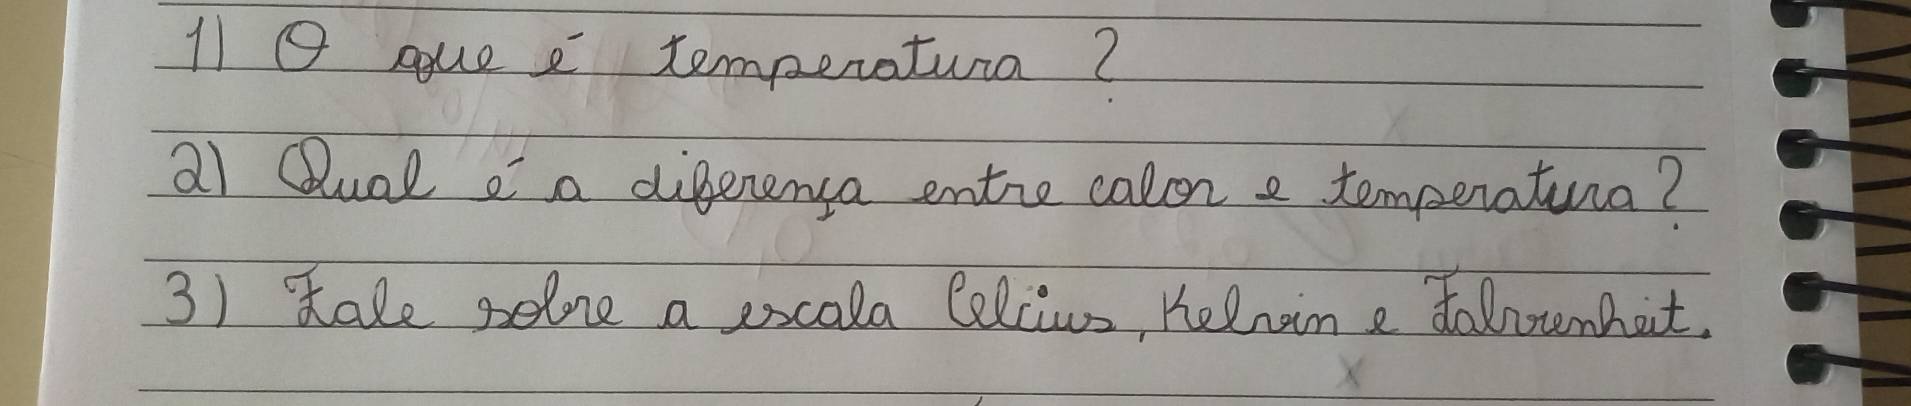 1) O que é temperatura ?
2) Qual é a diferença entre calor e temperatura?
3) Fale sobre a escala Celcius, Kelvin e Fahrenheit.